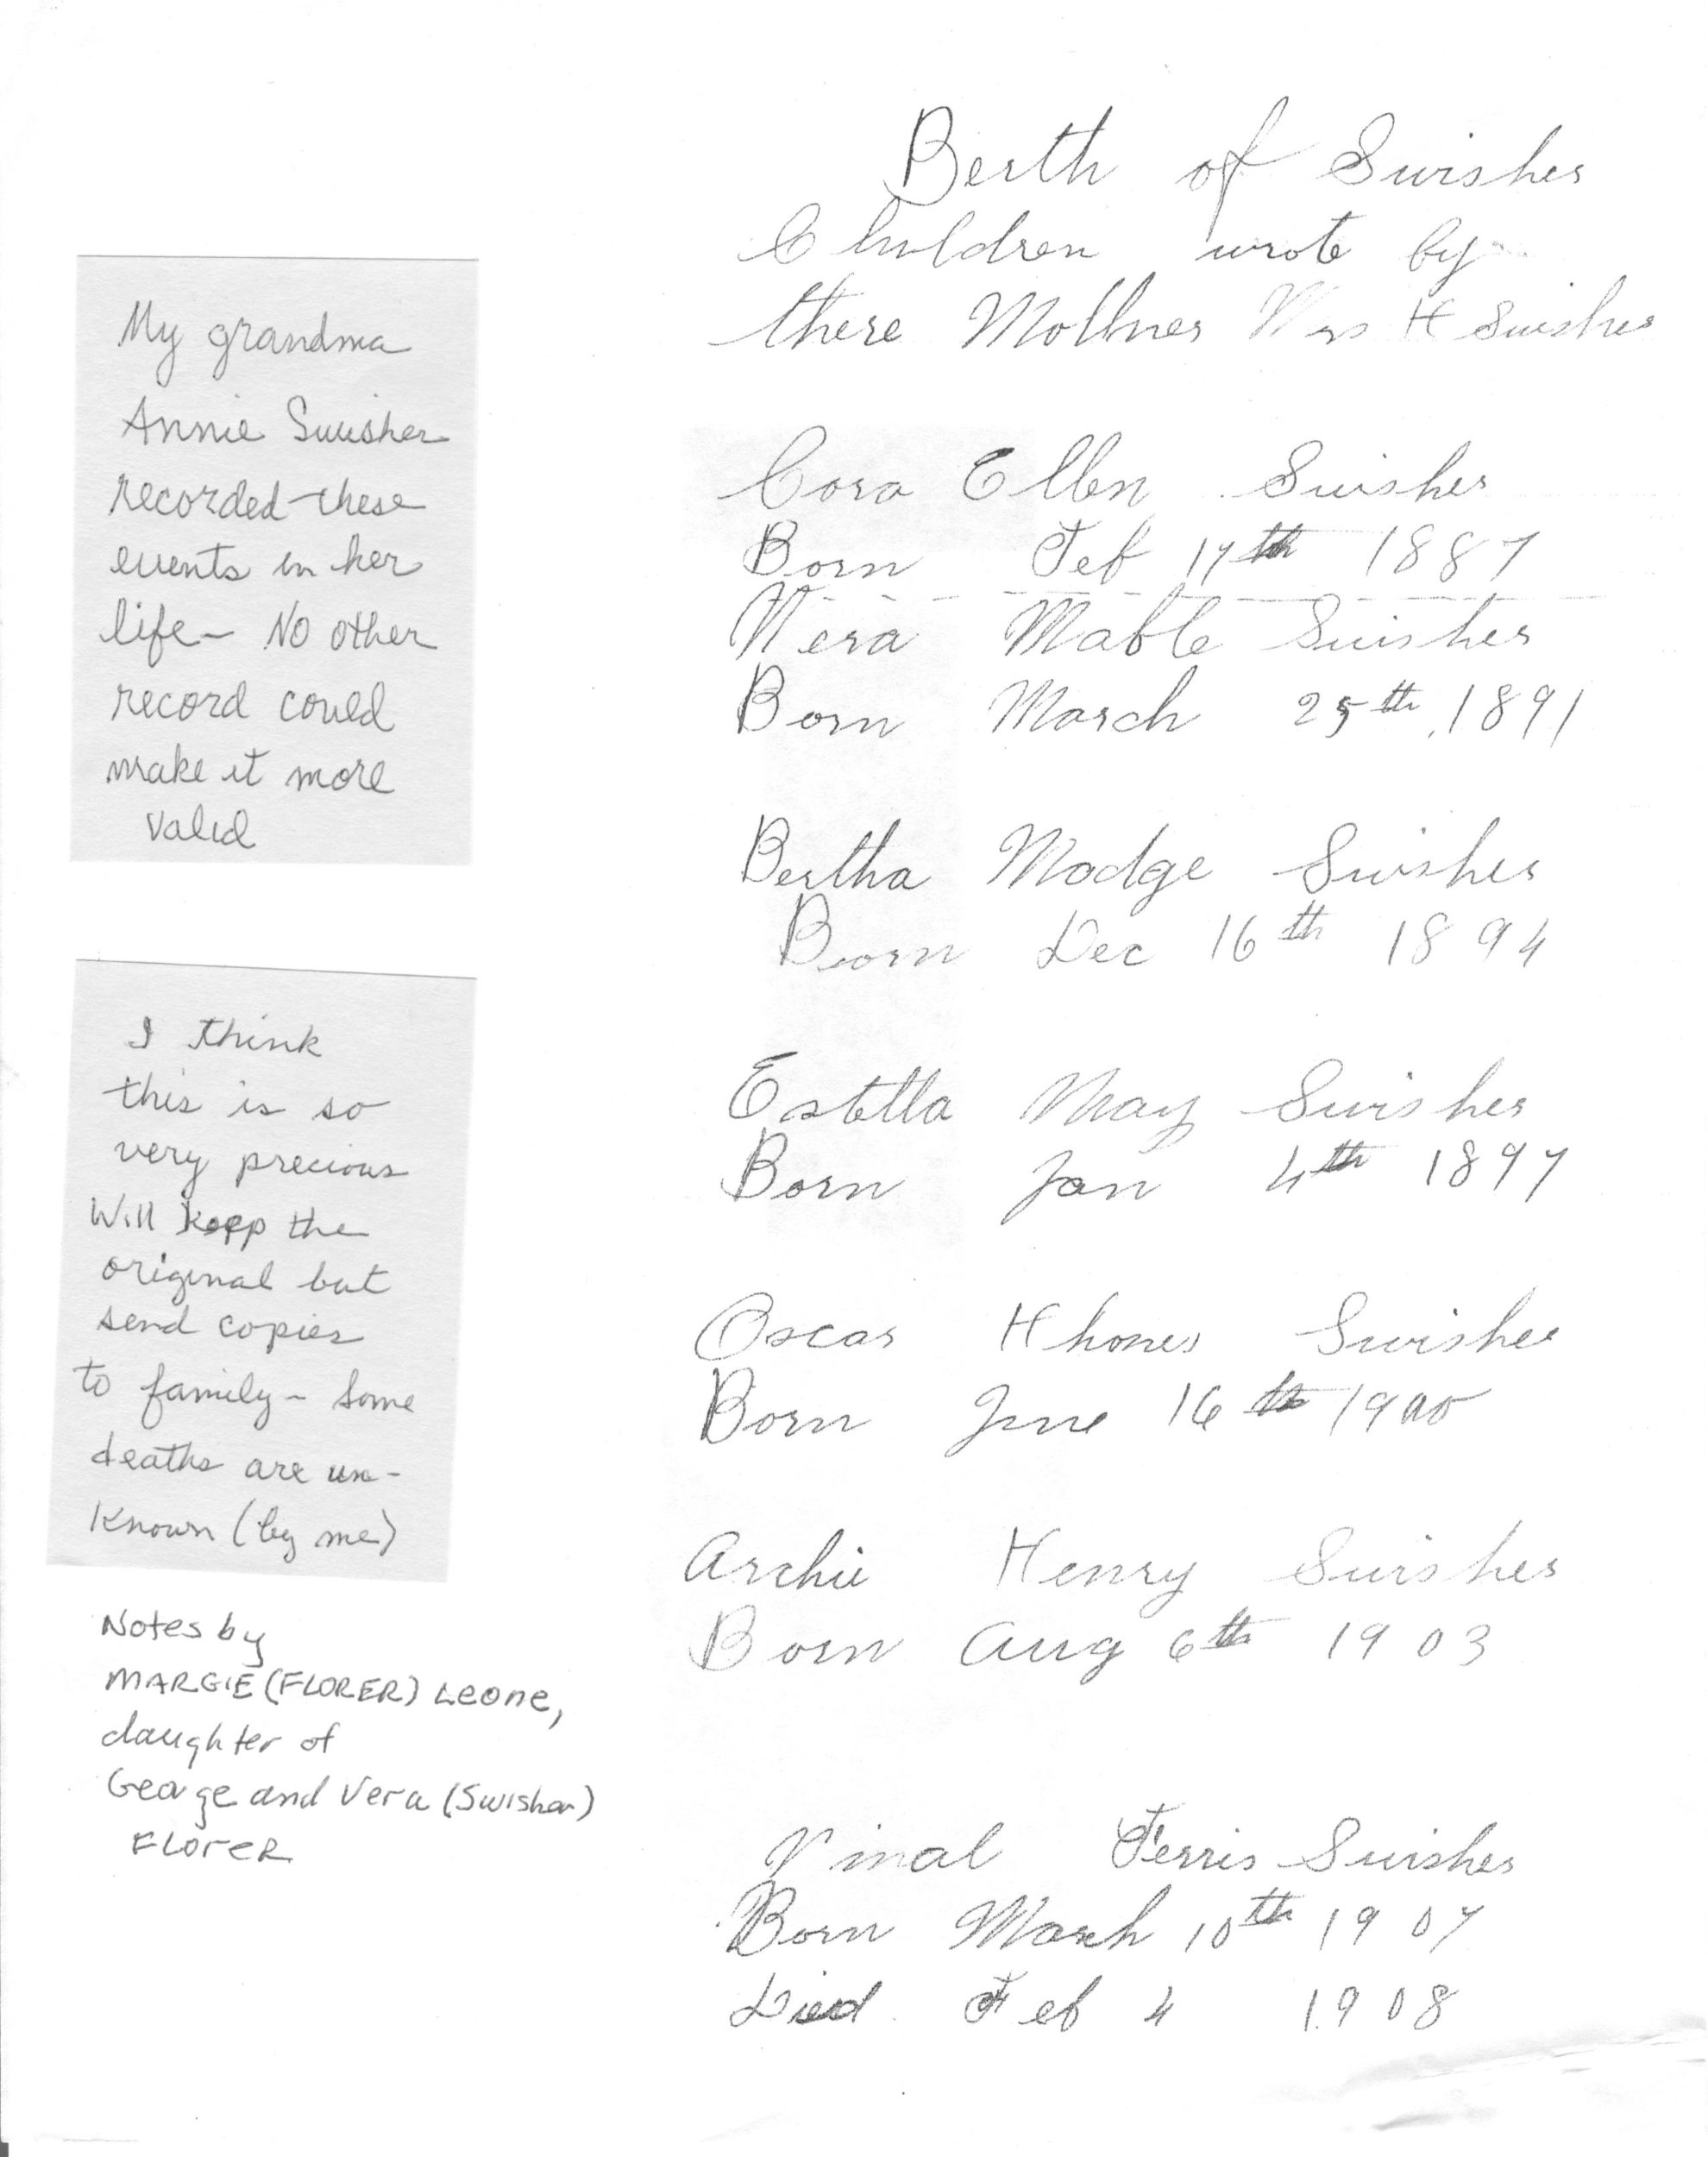 Berth of Swisher
Children wrote by
there Mothner Mrs H Swisher
Cora Ellen Swisher
Born Feb 17th 1887
Vera Mable Swisher
Born March 25th 1891
Bertha Madge Swisher
Born Dec 16th 1894
Estella May Swisher
Born Jan 4th 1897
Oscar Swisher
Born June 16th 1900
Archie Henry Swisher
Born Aug 6th 1903
Vinal Ferris Swisher
Born March 10th 1907
Died Feb 4 1908
My grandma
Annie Swisher
recorded these
events in her
life - No other
record could
make it more
valid
I think
this is so
very precious
Will keep the
original but
send copies
to family - Some
deaths are un-
known (by me)
Notes by
MARGIE (FLORER) Leone,
daughter of
George and Vera (Swisher)
FLoreR